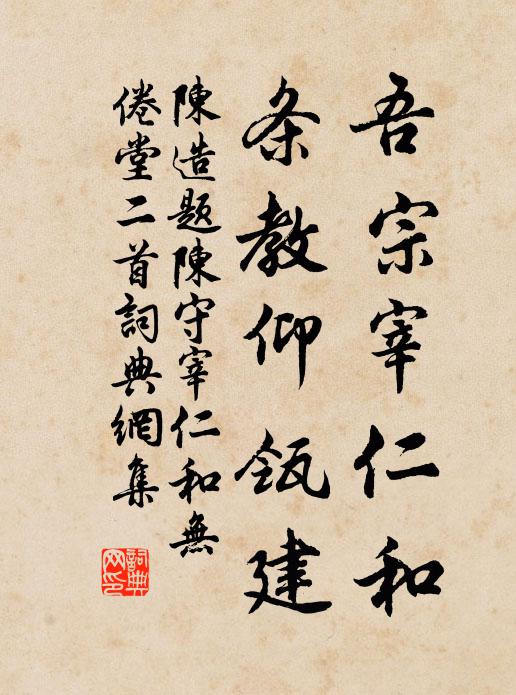 吾宗宰仁和
条教仰瓴建
陳造題陳守宰仁和無
倦堂二首詞典網集
詞典网印